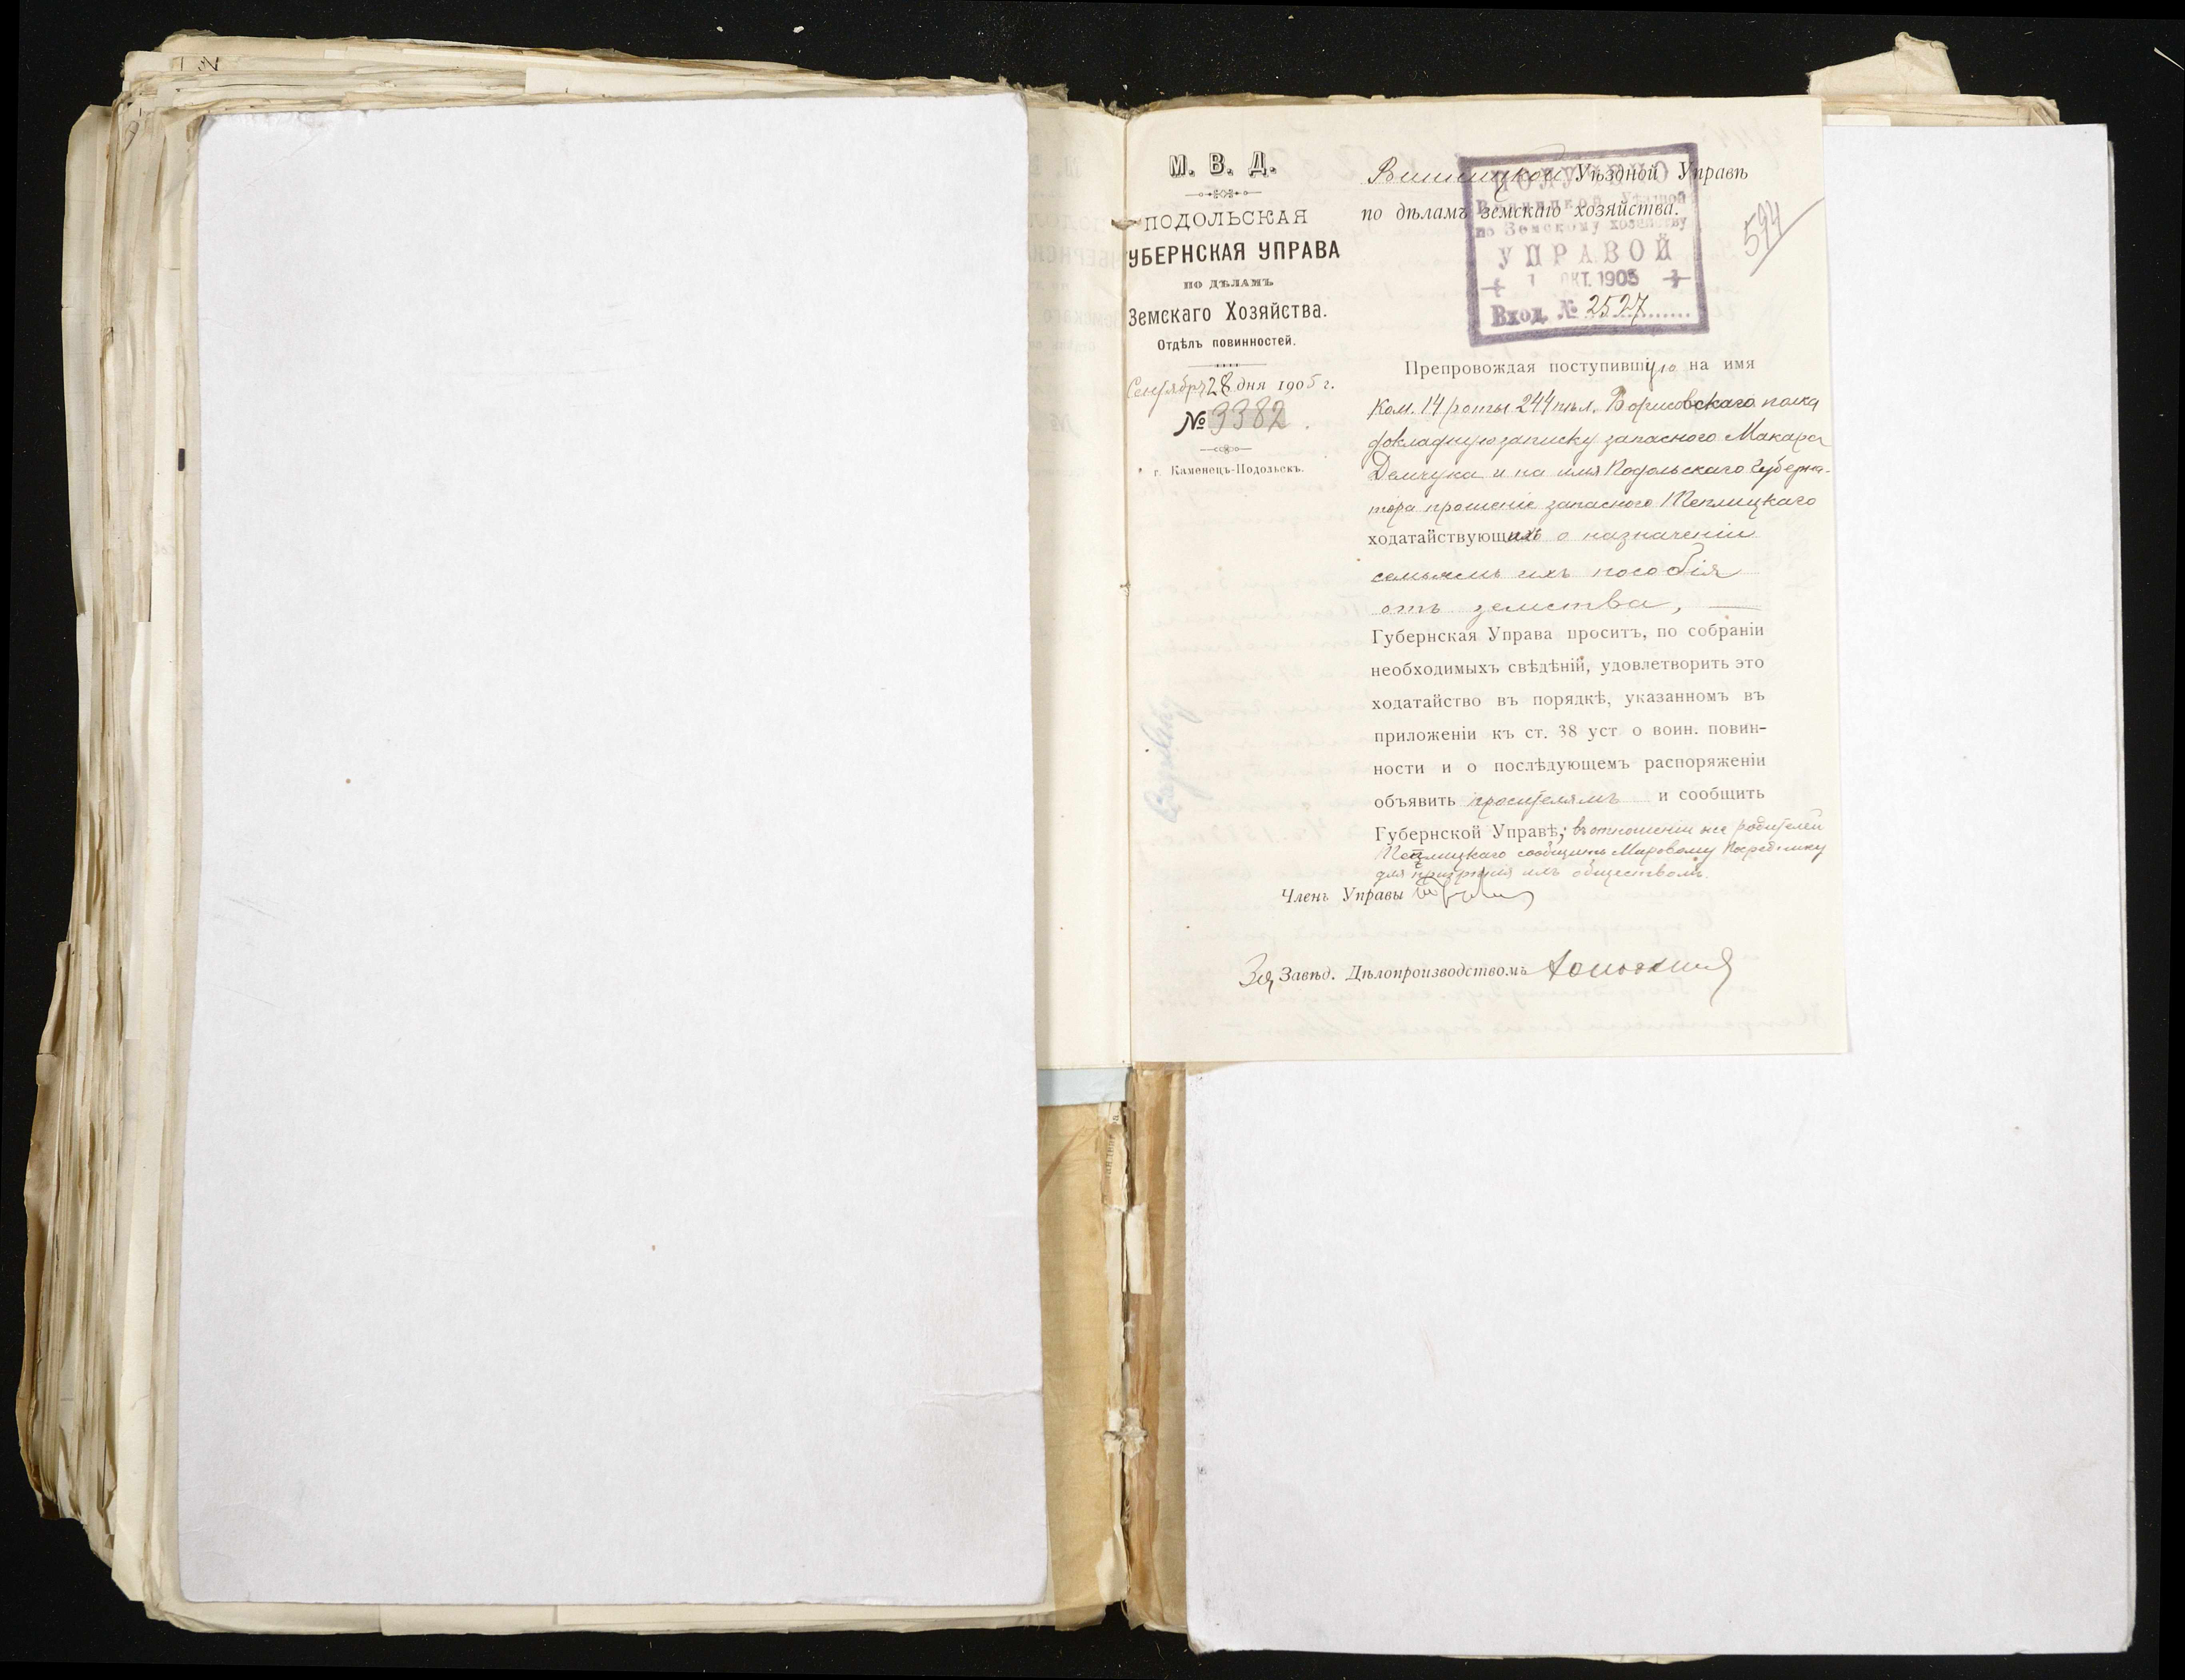 М. В. Д.
ПОДОЛЬСКАЯ
УБЕРНСКАЯ УПРАВА
ПО ДѢЛАМЪ
Земскаго Хозяйства.
Отдѣлъ повинностей.
Сентября 28 дня 1905 г.
№ 3382.
г. Каменецъ-Подольскъ.
Винницкой Уѣздной Управѣ
по дѣламъ земскаго хозяйства.
ПОЛУЧЕНО
Винницкой Уѣздной
по Земскому хозяйству
УПРАВОЙ
1 ОКТ. 1905
Вход. № 2527
594
Препровождая поступившую на имя
Ком. 14 роты 244 пѣх. Борисовскаго полка
докладную записку запасного Макара
Демчука и на имя Подольскаго Губерна-
тора прошеніе запасного Теплицкаго
ходатайствующихъ о назначеніи
семьямъ ихъ пособія
отъ земства,
Губернская Управа проситъ, по собраніи
необходимыхъ свѣдѣній, удовлетворить это
ходатайство въ порядкѣ, указанномъ въ
приложеніи къ ст. 38 уст о воин. повин-
ности и о послѣдующемъ распоряженіи
объявить просителямъ и сообщить
Губернской Управѣ; въ отношеніи же родителей
Теплицкаго сообщить Мировому Посреднику
для призрѣнія ихъ обществомъ.
Членъ Управы
За Завѣд. Дѣлопроизводствомъ